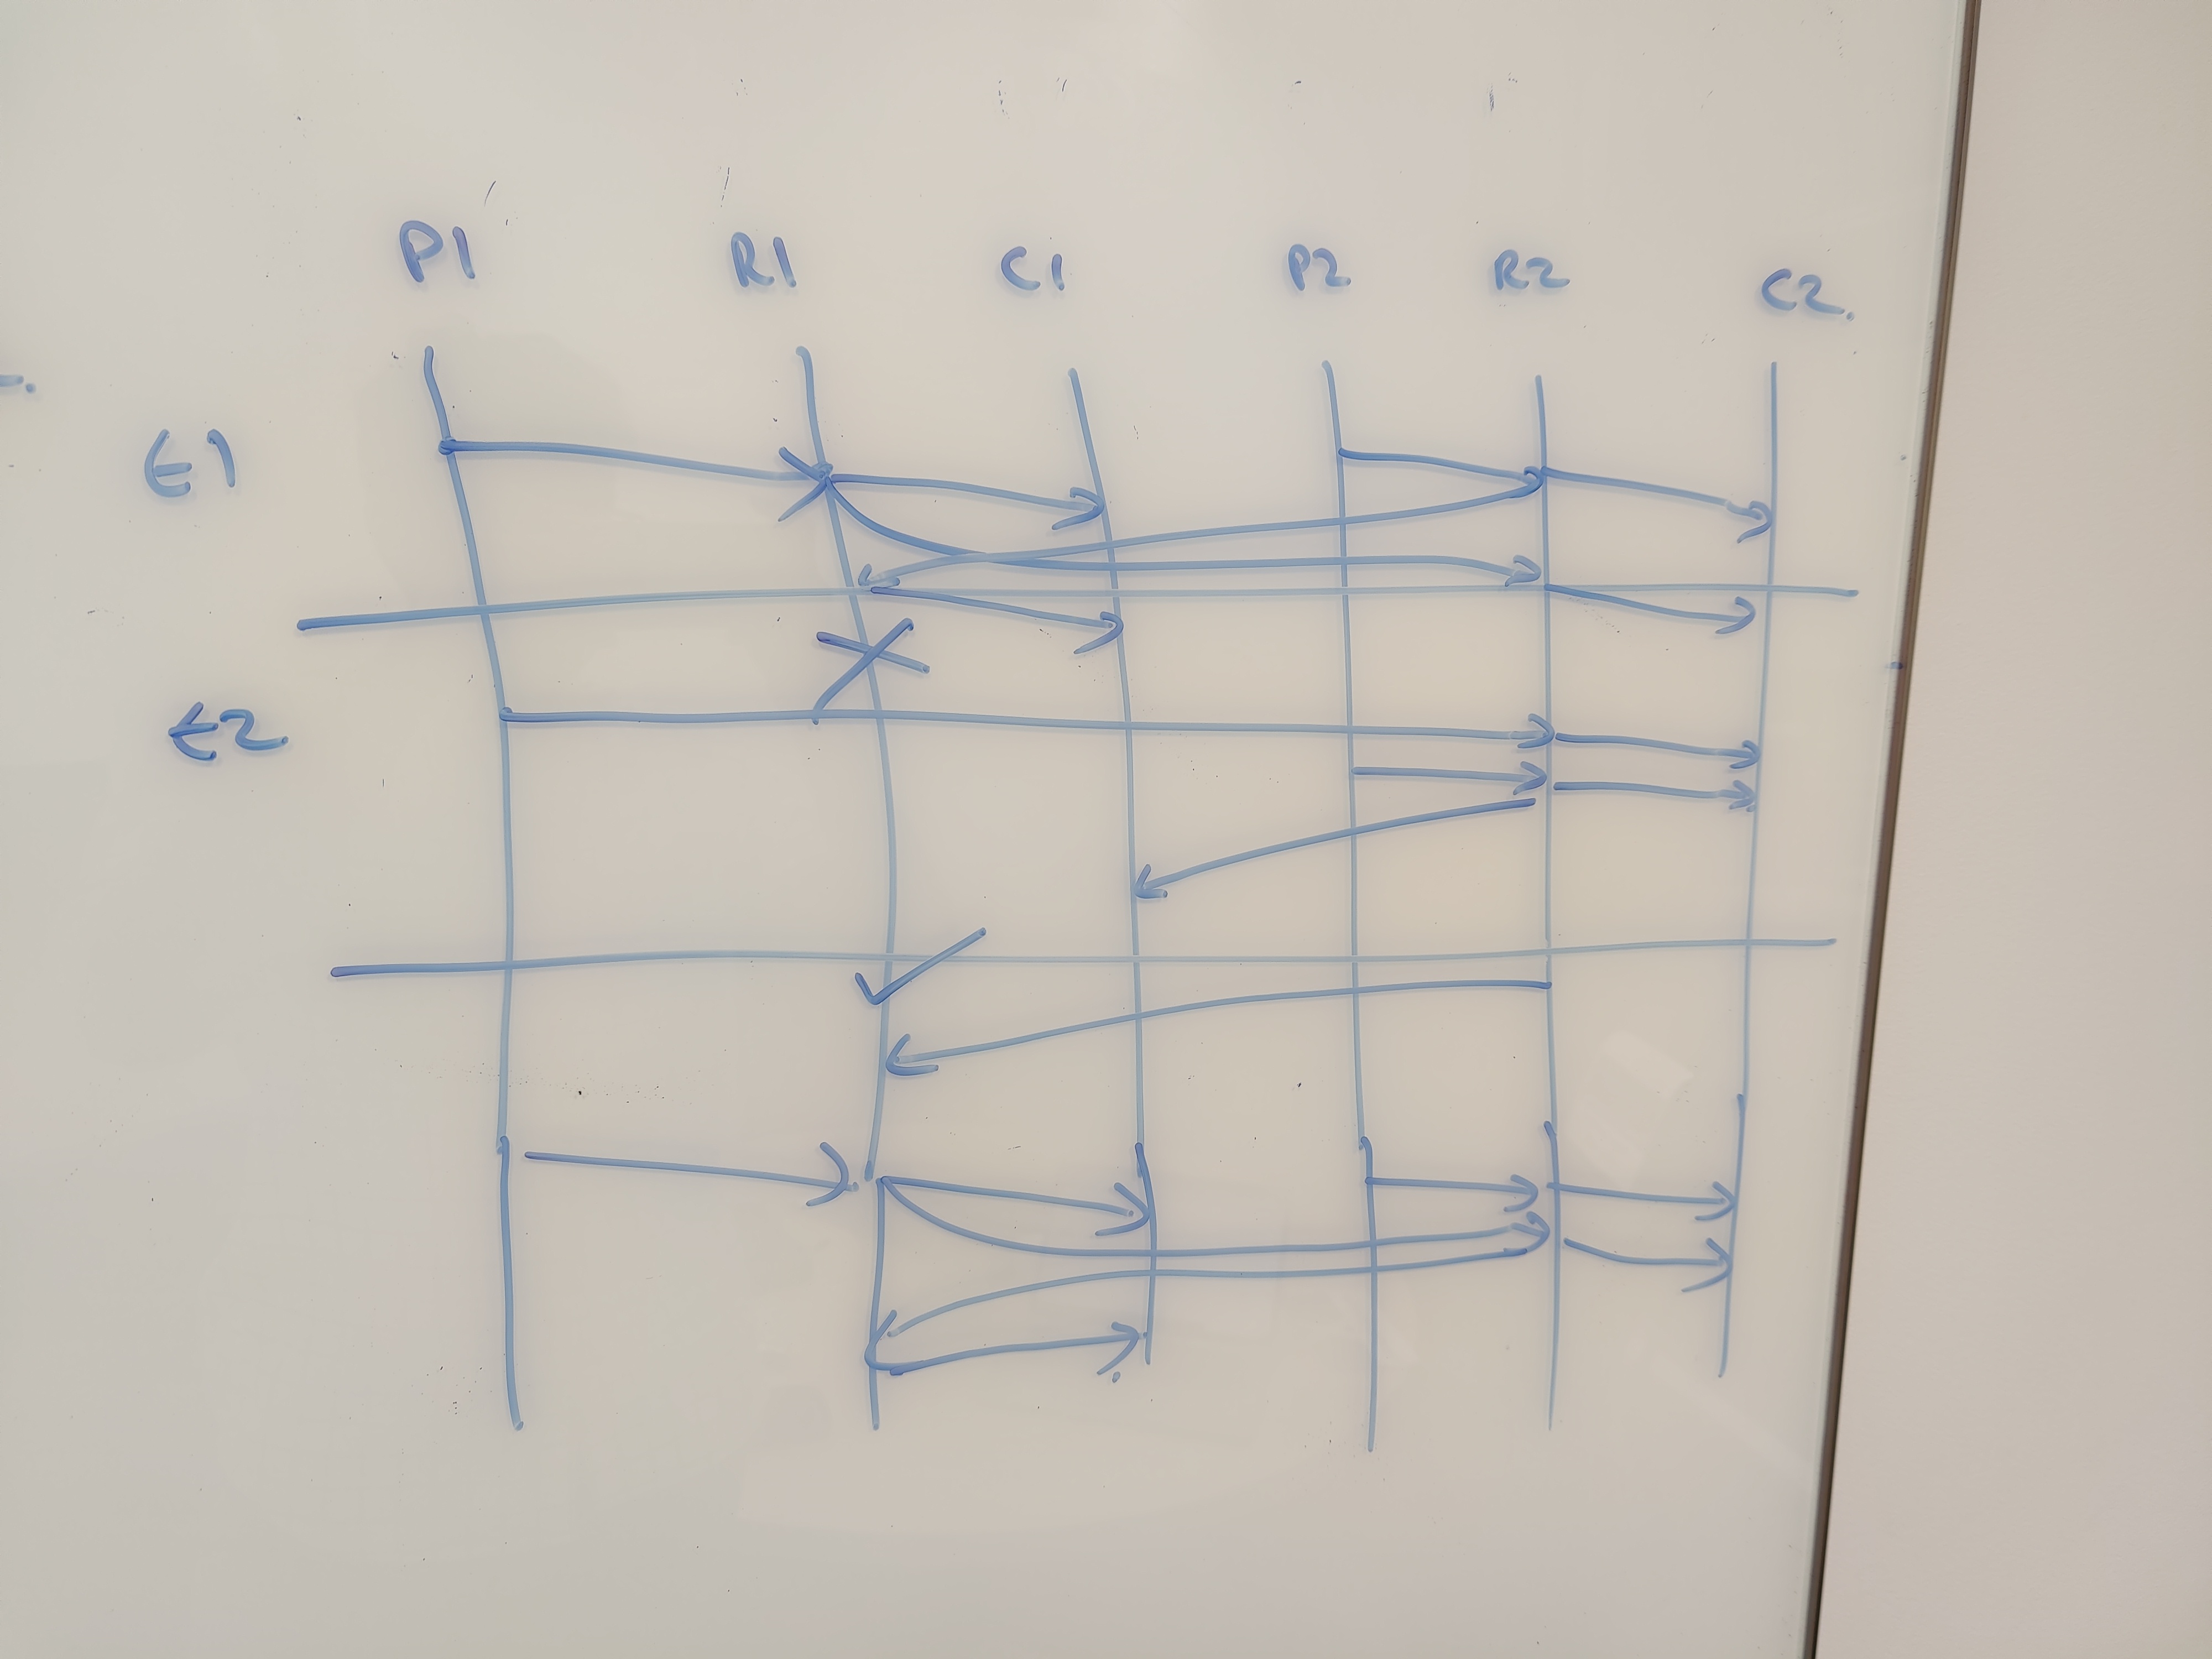 P1 R1 C1 P2 R2 C2.
t1
t2